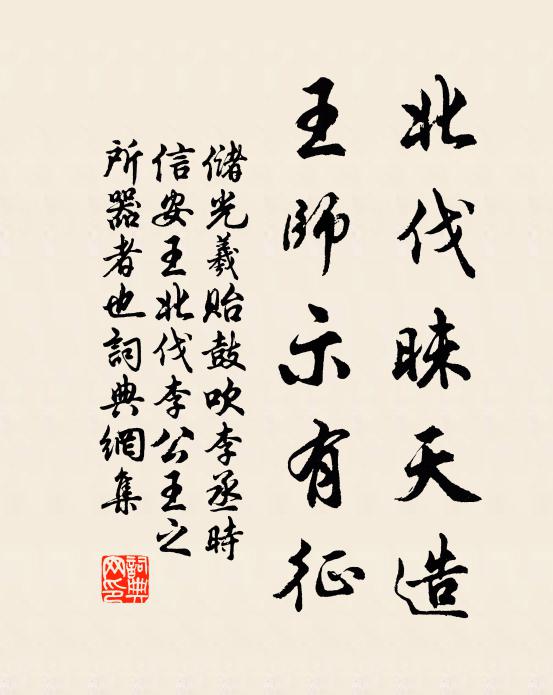 北伐昧天造
王師示有征
儲光羲貽鼓吹李丞時
信安王北伐李公王之
所器者也詞典網集
詞典
网印